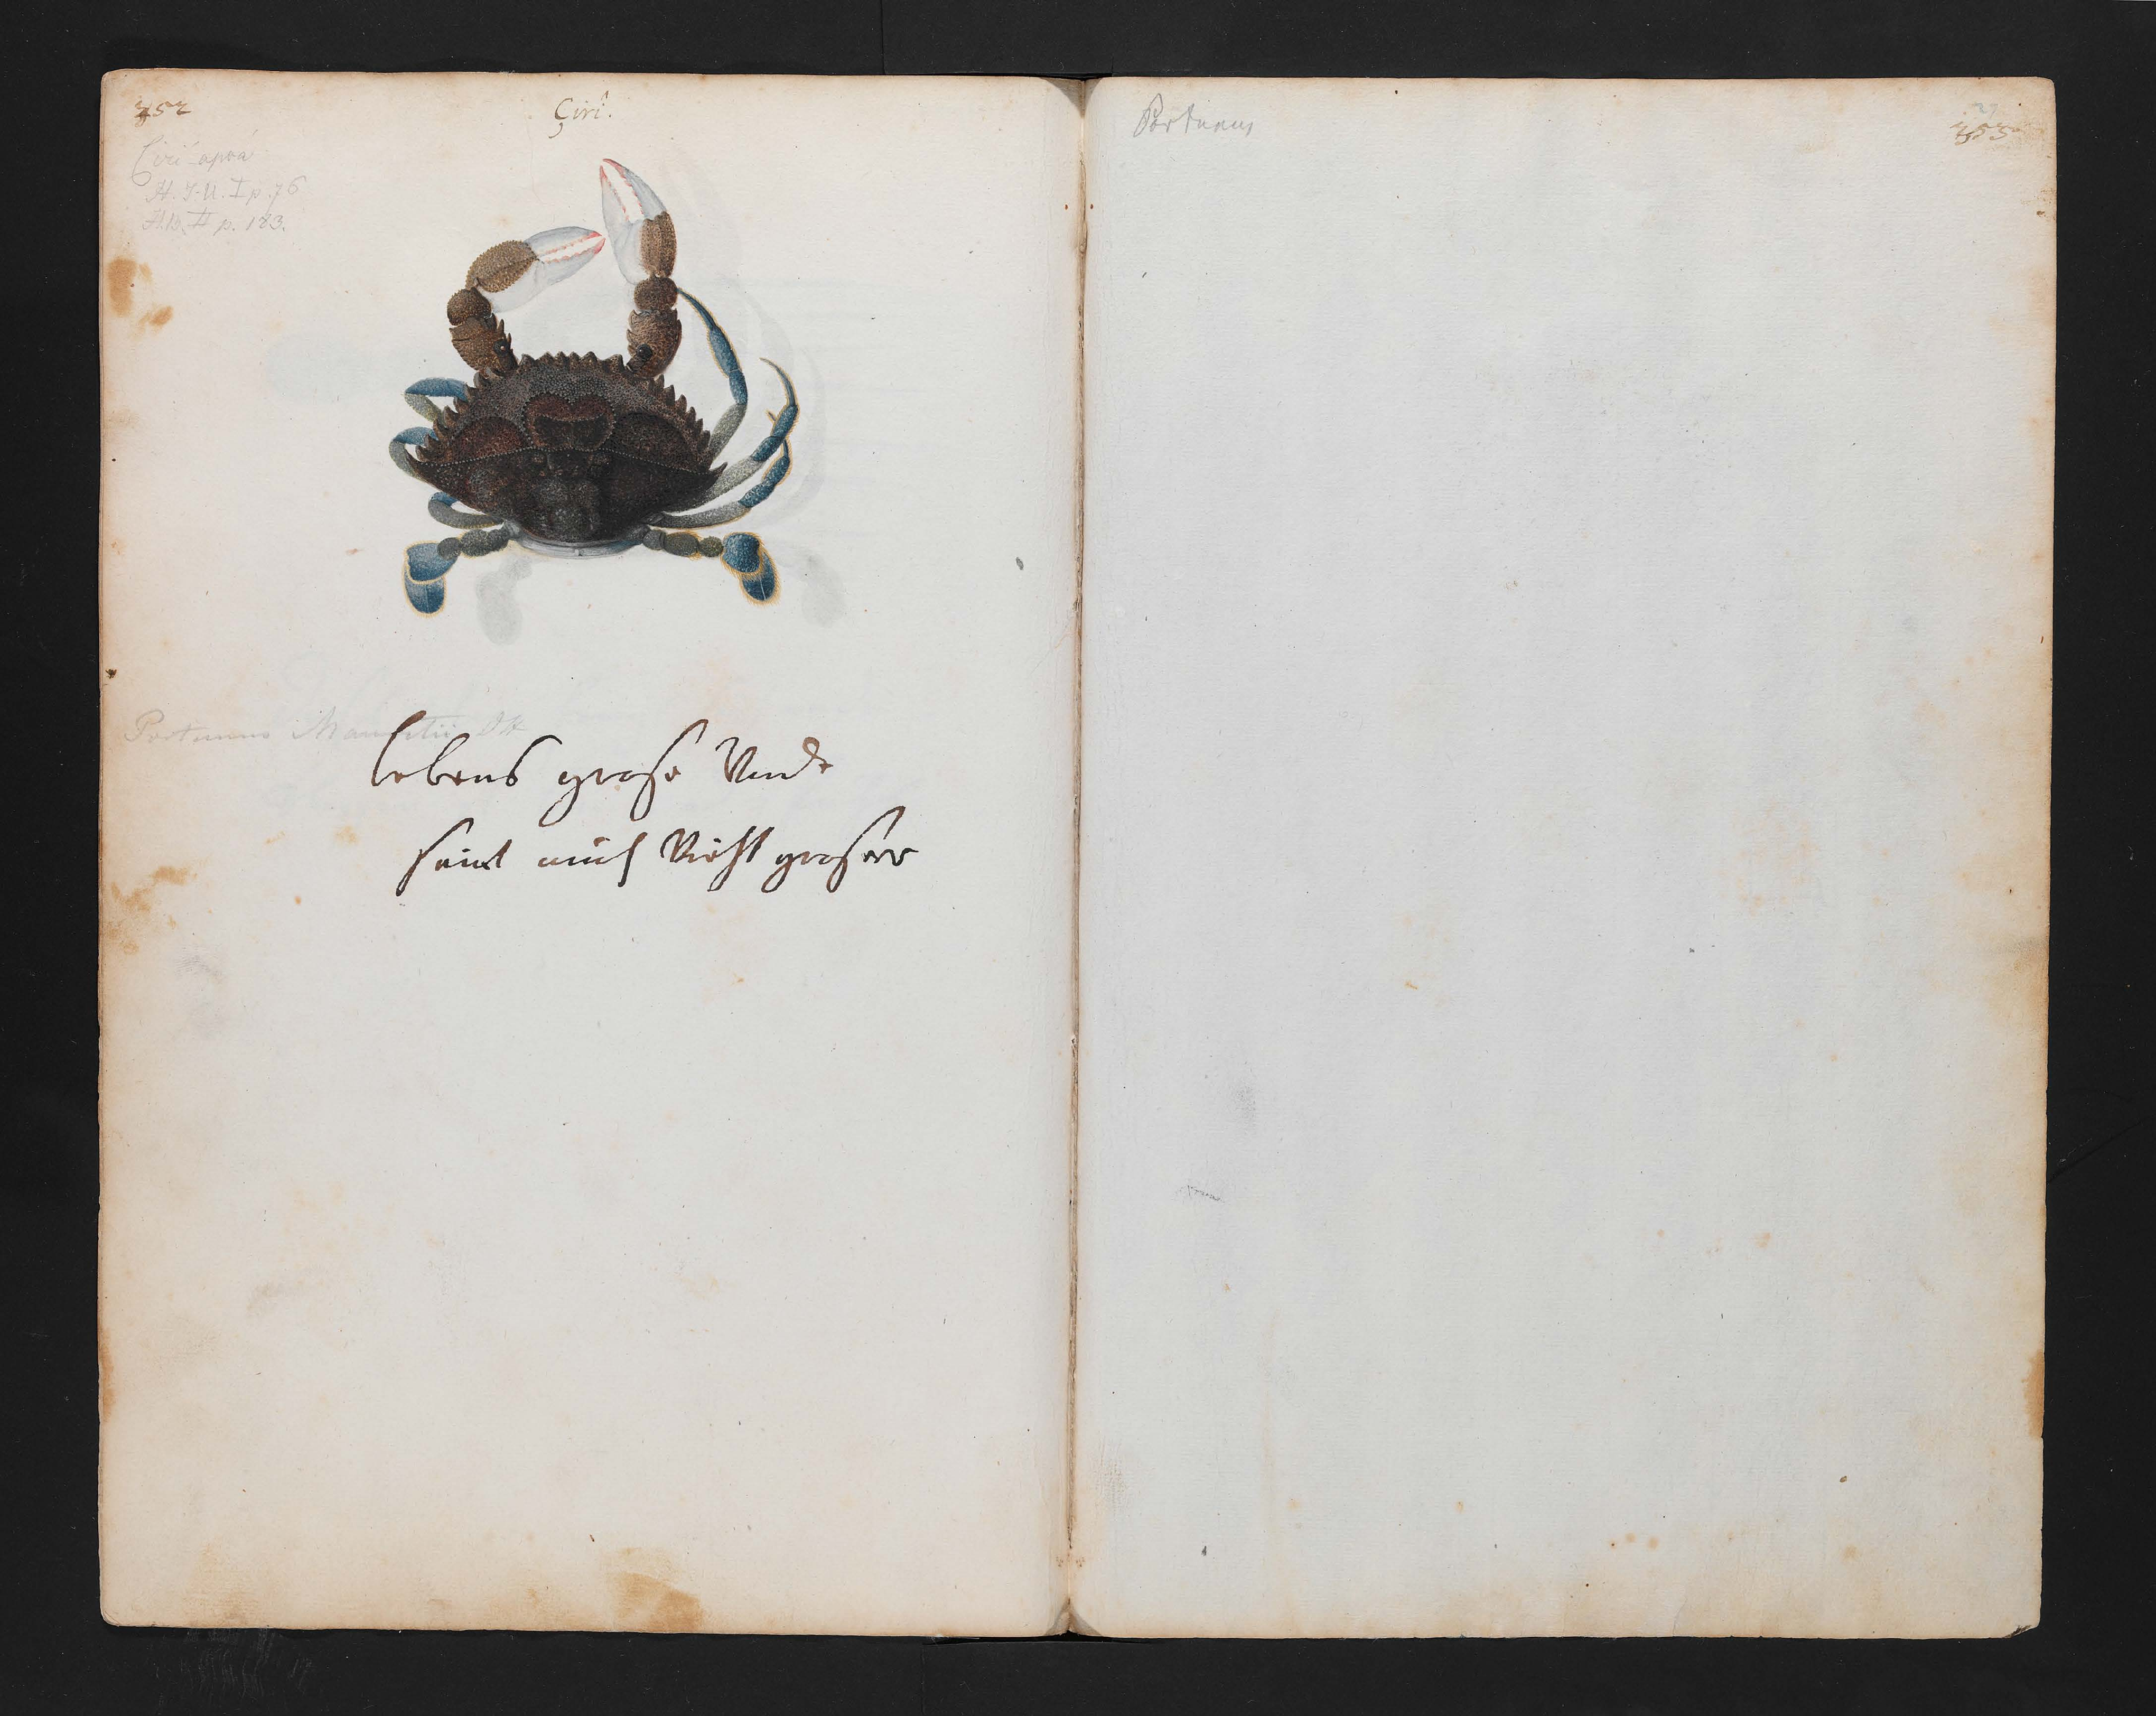 352
Çirî.
Ciri-apoá
H. I. N. I p. 76
H. B. II p. 183.
Portunus Mauritii
lebens grose Vnde
seint auch Nicht groser
Portunus
353